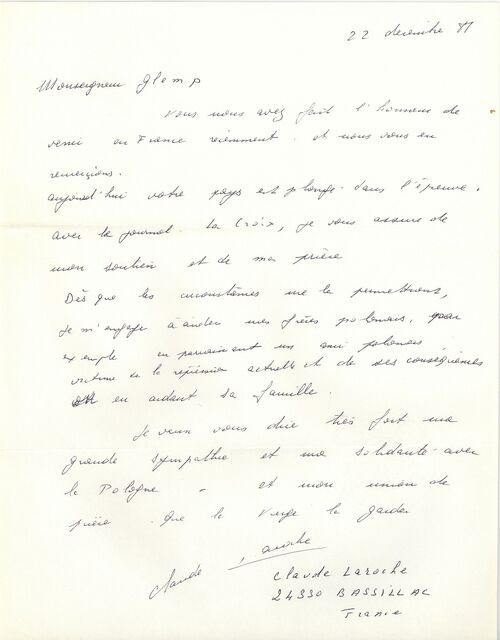 22 décembre 81
Monseigneur Glemp
Vous nous avez fait l'honneur de
venir en France récemment et nous vous en
remercions.
Aujourd'hui votre pays est plongé dans l'épreuve.
avec le journal La Croix, je vous assure de
mon soutien et de ma prière
Dès que les circonstances me le permettront,
je m'engage à aider mes frères polonais, pour
exemple en parrainant un ami polonais,
victime de la répression actuelle et de ses conséquences
ou en aidant sa famille.
Je veux vous dire très fort ma
grande sympathie et ma solidarité avec
la Pologne - et mon union de
prière. Que la Vierge la garde.
Claude Laroche
Claude Laroche
24330 BASSILLAC
France